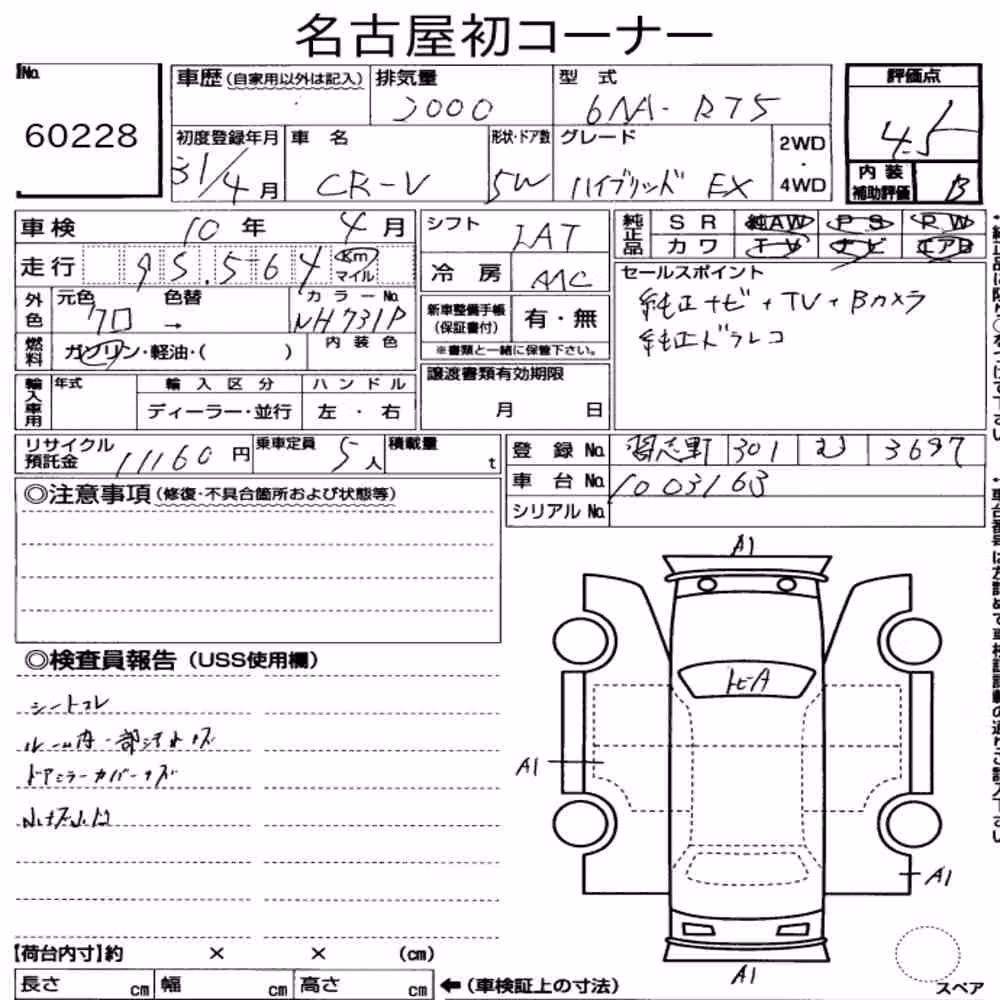 名古屋初コーナー
No. 60228
車歴(自家用以外は記入) 排気量 2000 型式 6NA-RT5
評価点 4.5
初度登録年月 31/4月 車名 CR-V 形状・ドア数 5W グレード ハイブリッド EX 2WD・4WD
内装補助評価 B
車検 10年 4月 シフト IAT 純正品 SR 純AW PS RW
カワ TV ナビ エアB
走行 95,564 Km マイル 冷房 AAC
セールスポイント
純正ナビ+TV+Bカメラ
純正ドラレコ
外色 元色 クロ → 色替 カラーNo. NH731P
新車整備手帳(保証書付) 有・無
※書類と一緒に保管下さい。
燃料 ガソリン・軽油・( ) 内装色
譲渡書類有効期限
月 日
輸入車用 年式 輸入区分 ハンドル
ディーラー・並行 左・右
リサイクル預託金 11160円 乗車定員 5人 積載量 t
登録No. 習志野 301 む 3697
車台No. 1003163
シリアルNo.
◎注意事項(修復・不具合箇所および状態等)
◎検査員報告(USS使用欄)
シートコレ
ドアミラーカバーキズ
A1
トビA
A1
A1
A1
【荷台内寸】約 × × (cm)
長さ cm 幅 cm 高さ cm ←(車検証上の寸法)
スペア